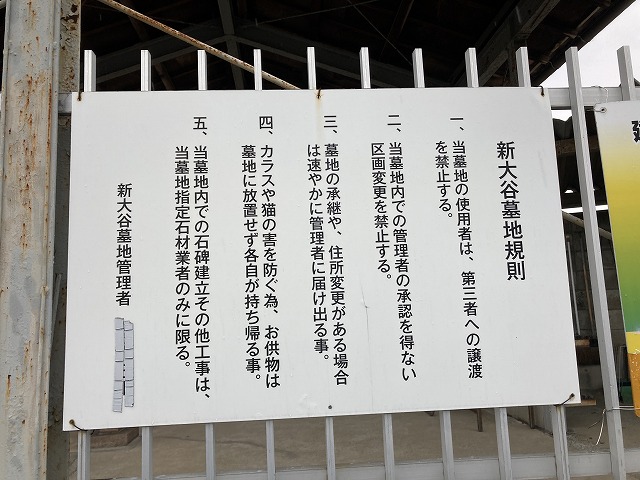 新大谷墓地規則
一、当墓地の使用者は、第三者への譲渡
を禁止する。
二、当墓地内での管理者の承認を得ない
区画変更を禁止する。
三、墓地の承継や、住所変更がある場合
は速やかに管理者に届け出る事。
四、カラスや猫の害を防ぐ為、お供物は
墓地に放置せず各自が持ち帰る事。
五、当墓地内での石碑建立その他工事は、
当墓地指定石材業者のみに限る。
新大谷墓地管理者